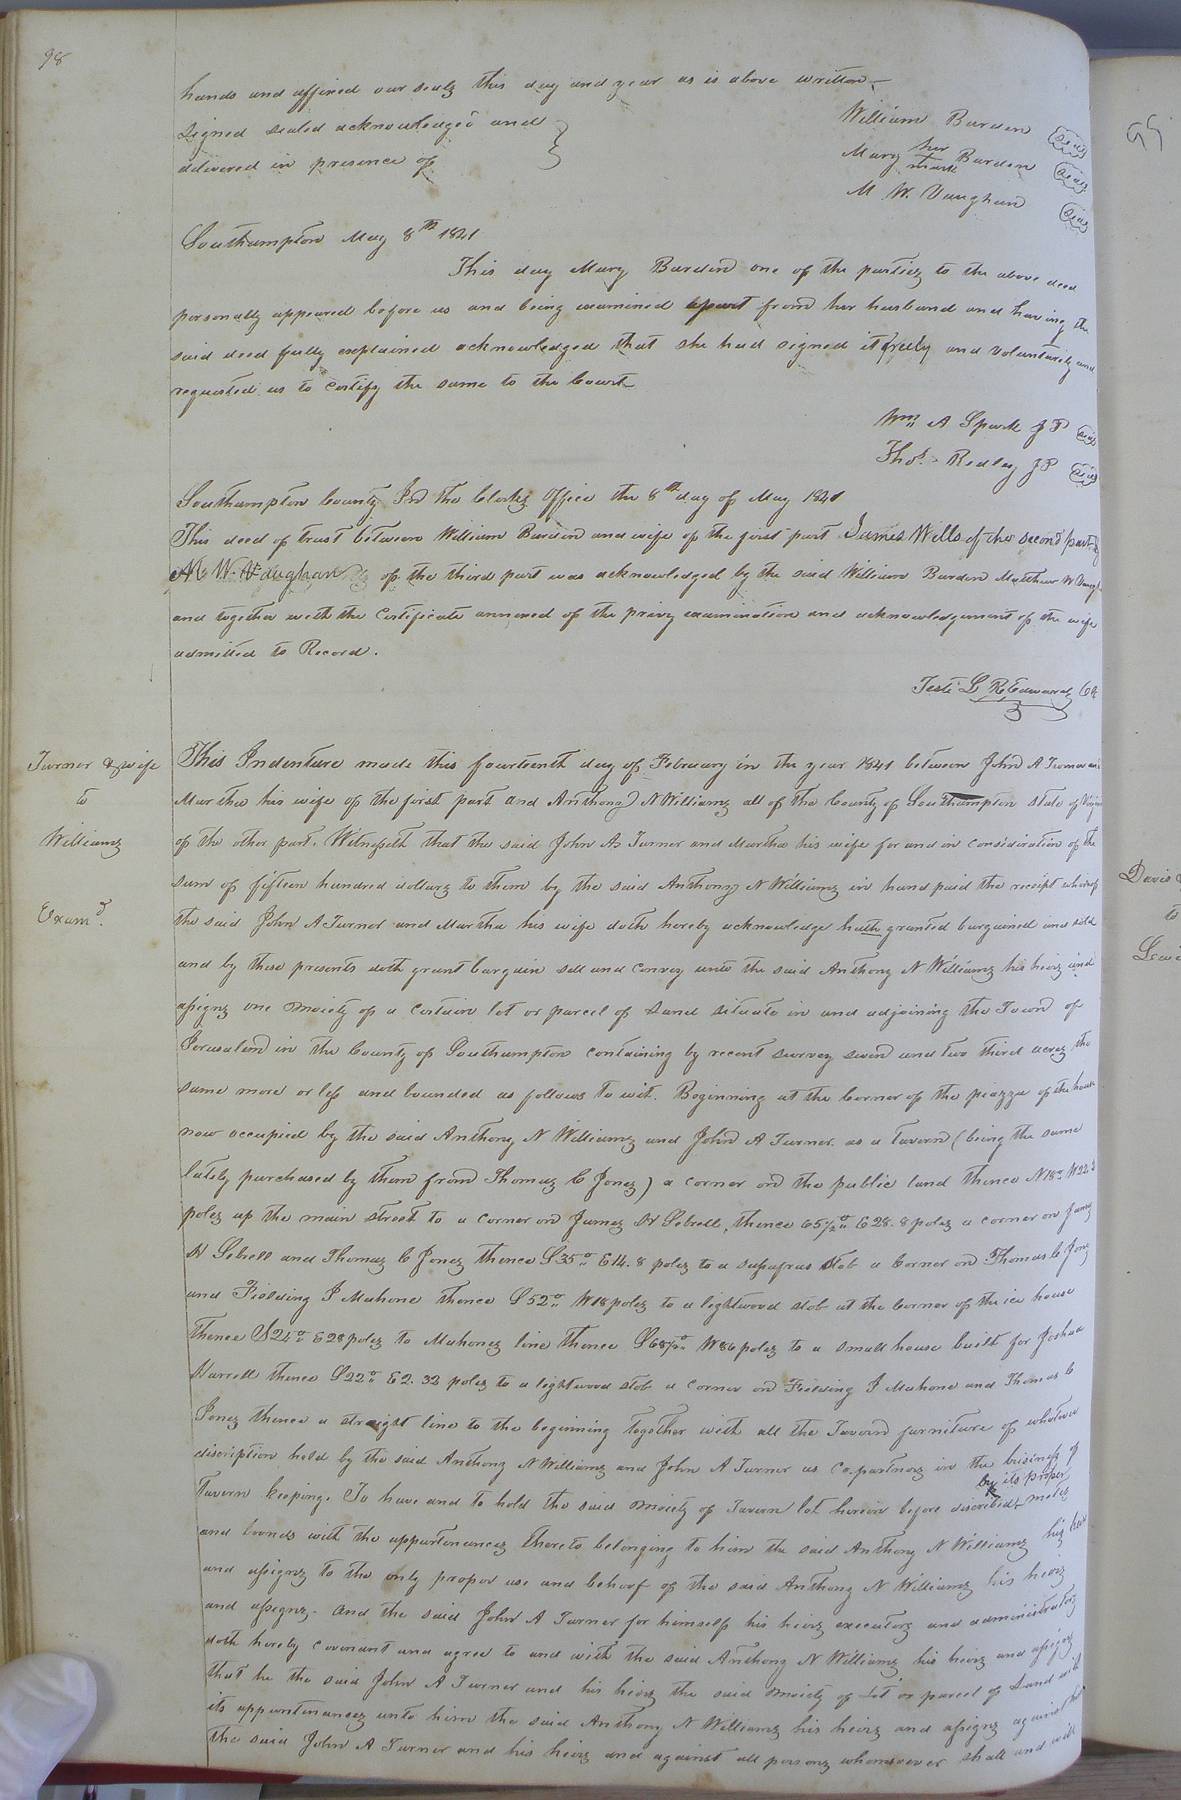 98
hands and affixed our seals this day and year as is above written
Signed sealed acknowledged and
delivered in presence of
William Barden Seal
Mary her mark Barden Seal
M W. Vaughan Seal
Southampton May 8th 1841
This day Mary Barden one of the parties to the above deed
personally appeared before us and being examined apart from her husband and having the
said deed fully explained acknowledged that she had signed it freely and voluntarily and
requested us to certify the same to the Court
Wm A Spark J P Seal
Thos. Redley J P Seal
Southampton County In the Clerks Office the 8th day of May 1841
This deed of trust between William Barden and wife of the first part James Wells of the second part &
M. W. Vaughan of the third part was acknowledged by the said William Barden Matthew W Vaugh
and together with the Certificate annexed of the privy examination and acknowledgement of the wife
admitted to Record.
Teste L R Edwards
Turner & wife
to
Williams
Examd.
This Indenture made this fourteenth day of February in the year 1841 between John A Turner and
Martha his wife of the first part and Anthony N Williams all of the County of Southampton state of
of the other part. Witnesseth that the said John A Turner and Martha his wife for and in consideration of the
sum of fifteen hundred dollars to them by the said Anthony N Williams in hand paid the receipt whereof
the said John A Turner and Martha his wife doth hereby acknowledge hath granted bargained and sold
and by these presents doth grant bargain sell and convey unto the said Anthony N Williams his heirs and
assigns one moiety of a certain lot or parcel of Land situate in and adjoining the Town of
Jerusalem in the County of Southampton containing by recent survey seven and two third acres the
same more or less and bounded as follows to wit. Beginning at the Corner of the piazza of the house
now occupied by the said Anthony N Williams and John A Turner as a tavern (being the same
lately purchased by them from Thomas C Jones) a corner on the public land thence N18° W22.2
poles up the main street to a corner on James H Sebrell, thence 65 1/2° E 28.8 poles a corner on James
H Sebrell and Thomas C Jones thence S35° E14.8 poles to a sassafras stob a Corner on Thomas C Jones
and Fielding J Mahone thence S52° W18 poles to a lightwood stob at the corner of the ice house
thence S24° E28 poles to Mahones line thence S68 1/2° W86 poles to a small house built for Joshua
Harrell thence S22° E2.32 poles to a lightwood stob a corner on Fielding J Mahone and Thomas C
Jones thence a straight line to the beginning together with all the Tavern furniture of whatever
discription held by the said Anthony N Williams and John A Turner as Co.partners in the business of
Tavern keeping. To have and to hold the said moiety of Tavern lot herein before described by its proper metes
and bounds with the appurtenances thereto belonging to him the said Anthony N Williams his heirs
and assigns to the only proper use and behoof of the said Anthony N Williams his heirs
and assigns. And the said John A Turner for himself his heirs executors and administrators
doth hereby covenant and agree to and with the said Anthony N Williams his heirs and assigns
that he the said John A Turner and his heirs the said moiety of Lot or parcel of Land with
its appurtenances unto him the said Anthony N Williams his heirs and assigns against
the said John A Turner and his heirs and against all persons whomsoever shall and will
95
Davis &
to